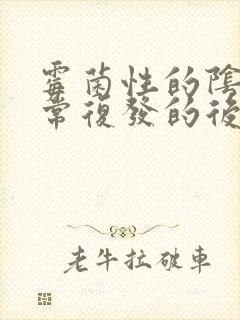 霉菌性的陰
常復發的後
老牛拉破車